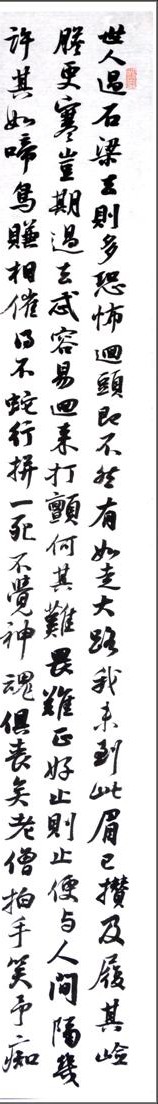 世人過石梁立則多恐怖迴頭即不然有如走大路我未到此眉已攢及履其嶮
膝更寒豈期過去忒容易迴來打顫何其難畏難正好止則止便与人間隔幾
許其如啼鳥賺相催得不蛇行拚一死不覺神魂俱喪矣老僧拍手笑予痴